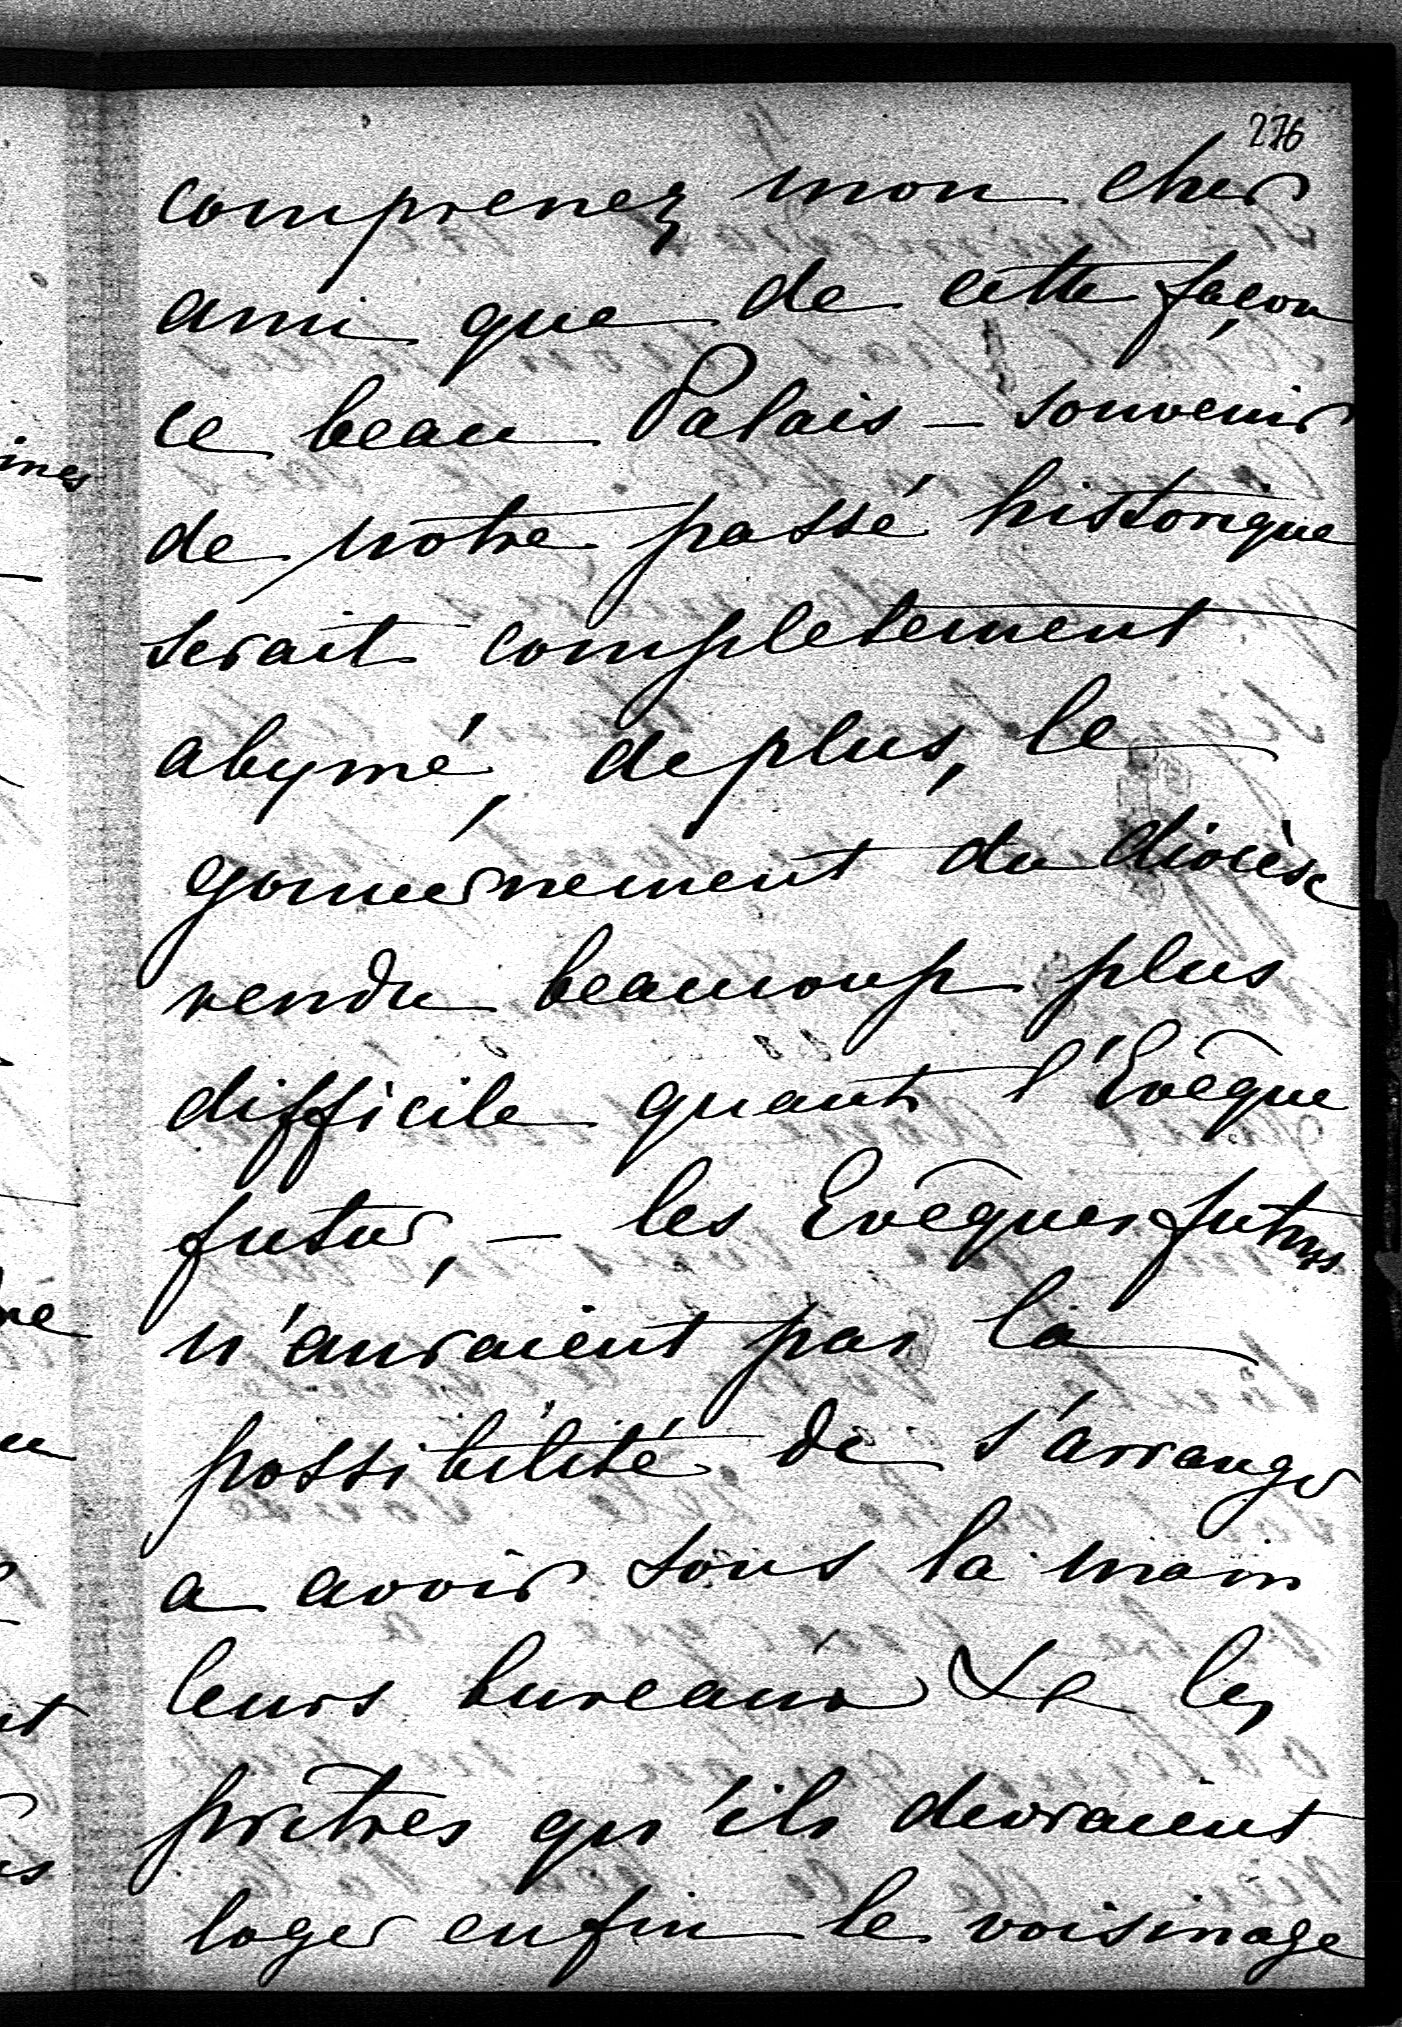 276
comprenez mon cher
ami que de cette façon
ce beau Palais – souvenir
de notre passé historique
serait completement
abymé, de plus, le
gouvernement du diocèse
rendu beaucoup plus
difficile quant l'Evêque
futur, – les Evêques futurs
n'auraient pas la
possibilité de s'arranger
a avoir sous la main
leurs bureaux & les
prêtres qu'ils devraient
loger enfin le voisinage